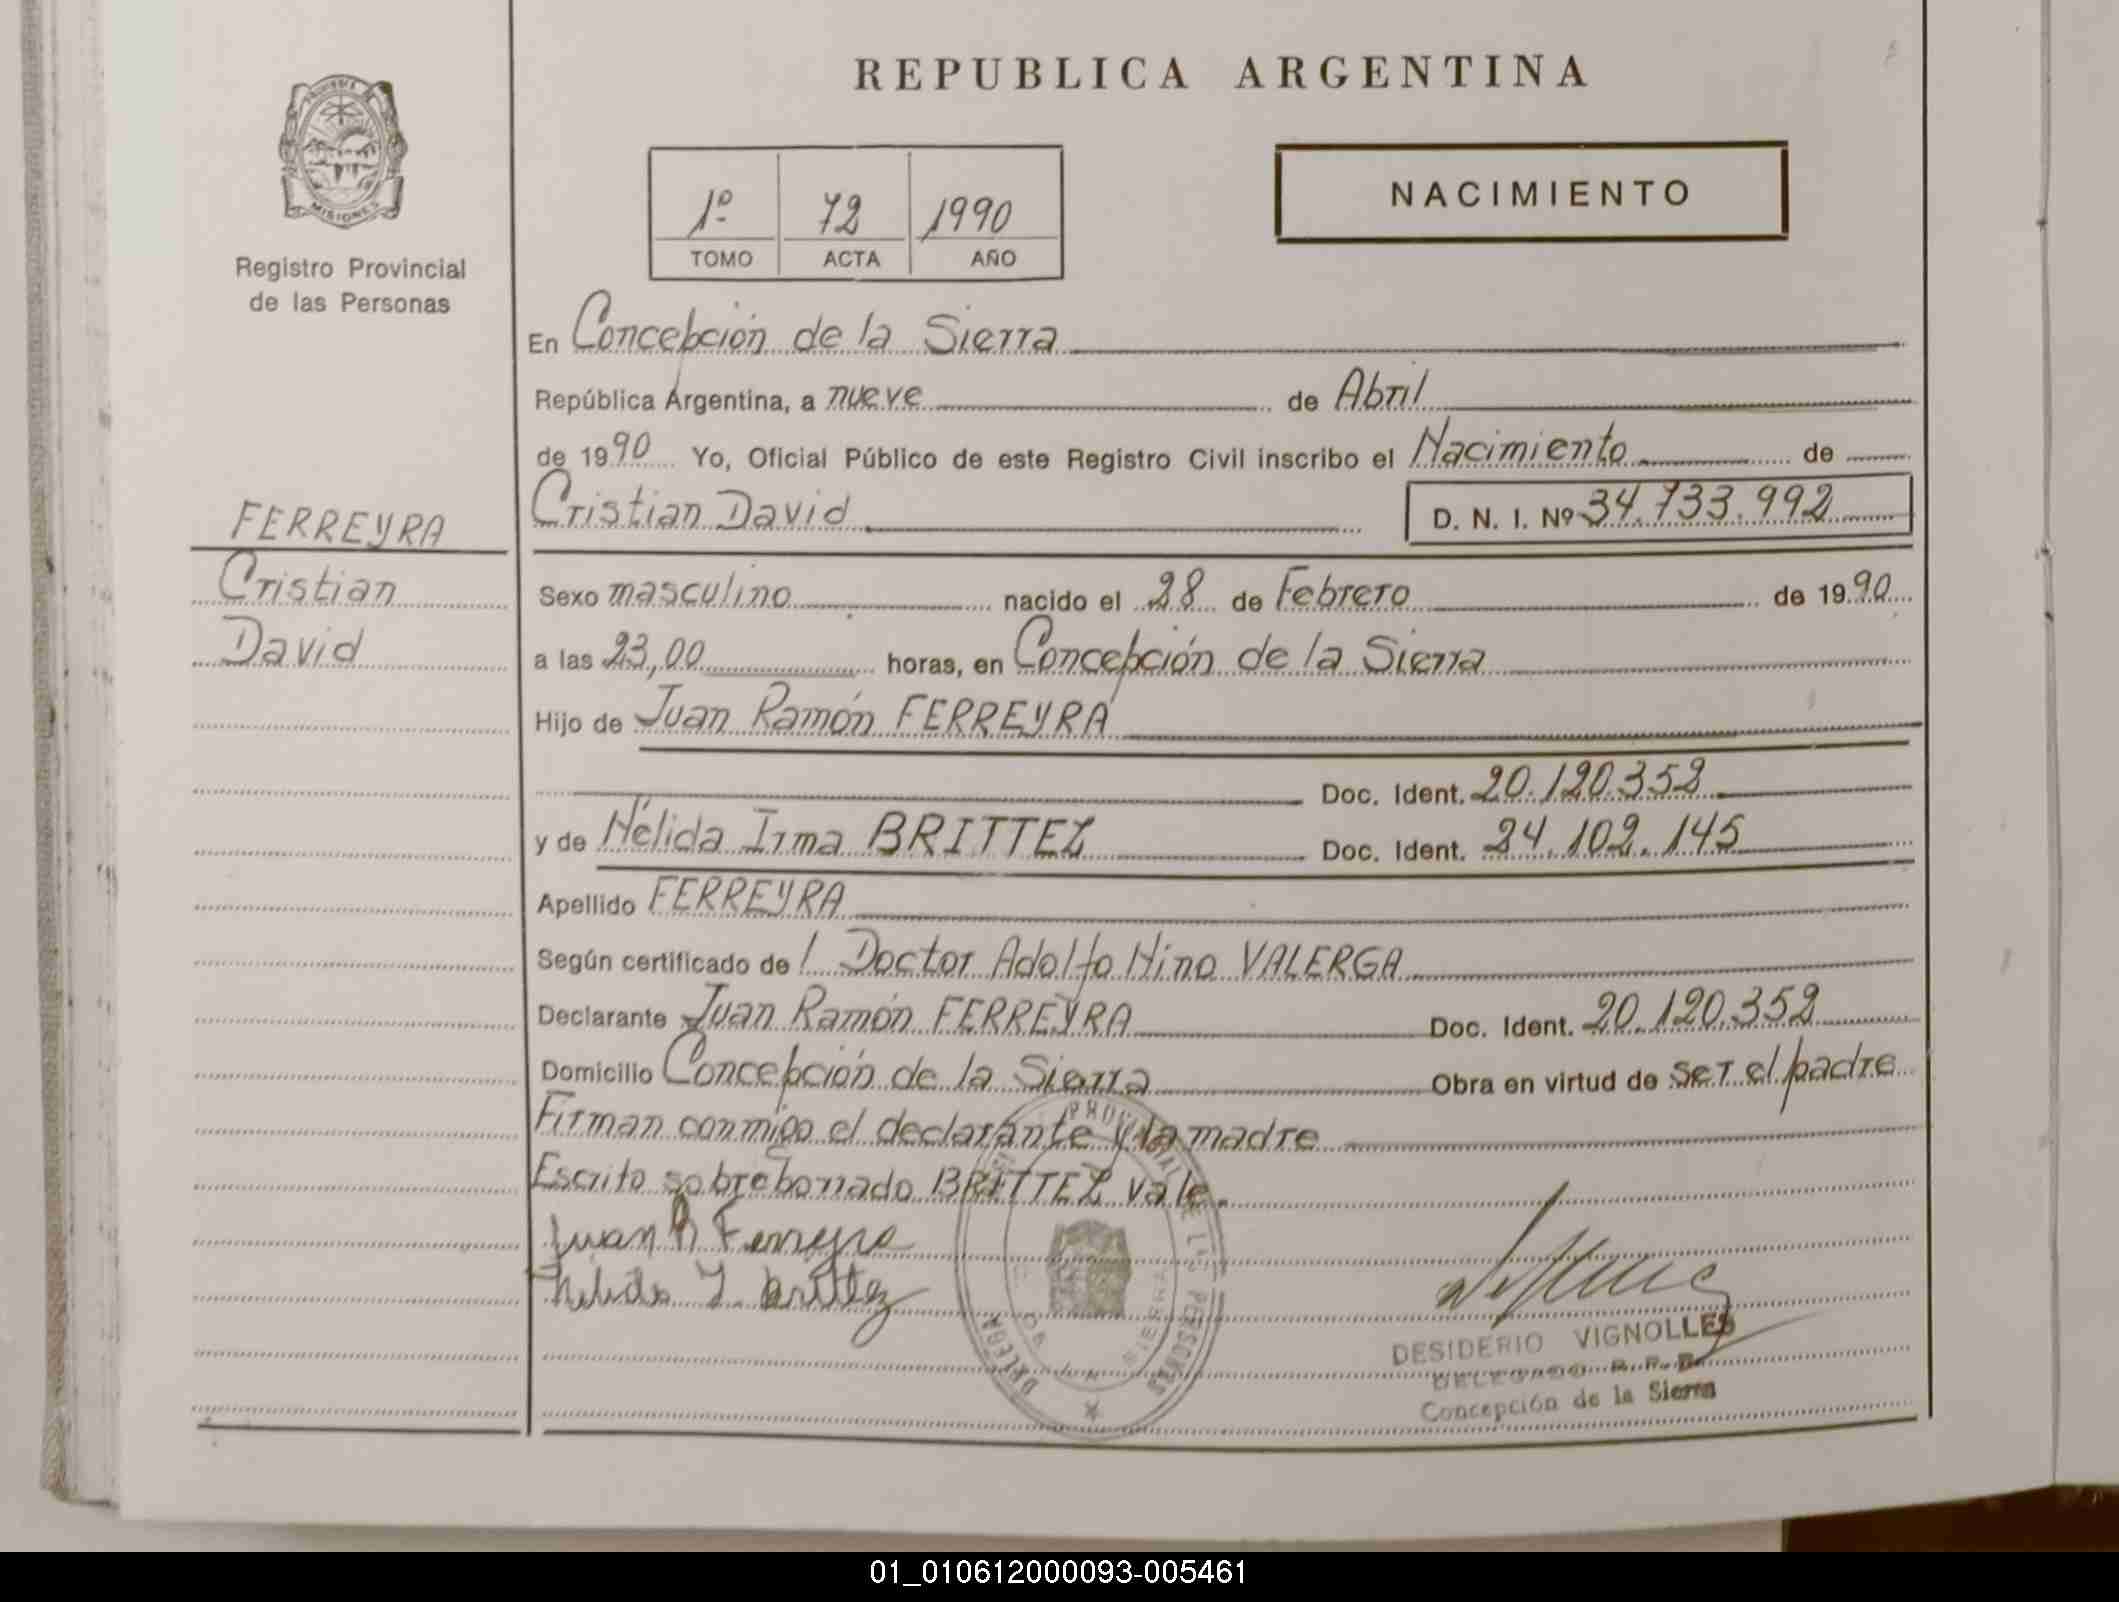 REPUBLICA ARGENTINA
MISIONES
Registro Provincial
de las Personas
1º 72 1990
TOMO ACTA AÑO
NACIMIENTO
En Concepción de la Sierra
República Argentina, a nueve de Abril
de 1990 Yo, Oficial Público de este Registro Civil inscribo el Nacimiento de
Cristian David D. N. I. Nº 34.733.992
FERREYRA
Cristian
David
Sexo masculino nacido el 28 de Febrero de 1990
a las 23,00 horas, en Concepción de la Sierra
Hijo de Juan Ramón FERREYRA
Doc. Ident. 20.120.352
y de Nélida Irma BRITTEZ Doc. Ident. 24.102.145
Apellido FERREYRA
Según certificado de l Doctor Adolfo Nino VALERGA
Declarante Juan Ramón FERREYRA Doc. Ident. 20.120.352
Domicilio Concepción de la Sierra Obra en virtud de ser el padre
Firman conmigo el declarante y la madre
Escrito sobreborrado BRITTEZ vale.
Juan R Ferreyra
Nelida I. Brittez
DESIDERIO VIGNOLLES
DELEGADO R. P. P.
Concepción de la Sierra
01_010612000093-005461